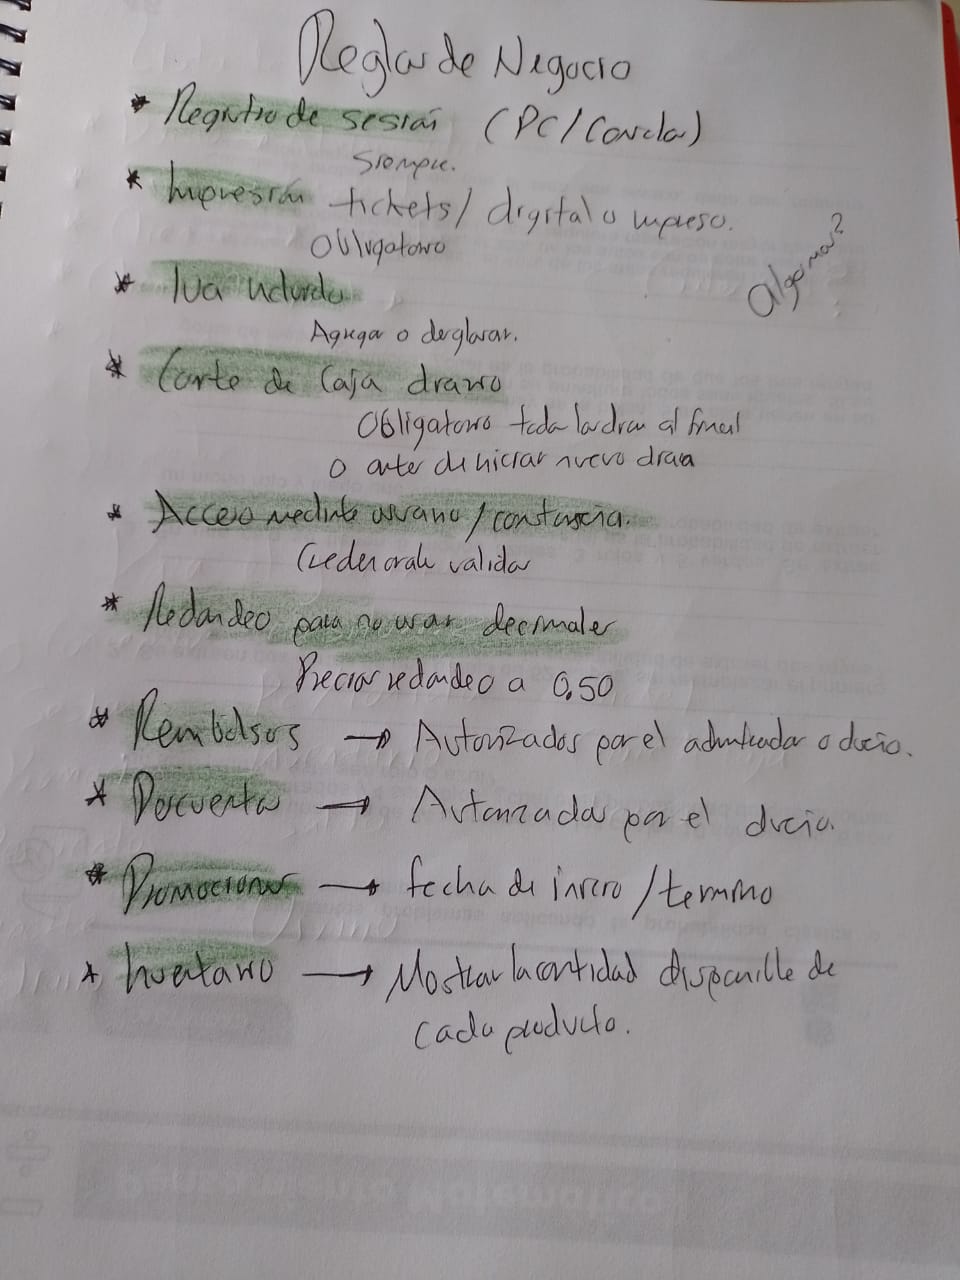 Reglas de Negocio
* Registro de sesión (PC/Consola)
Siempre.
* Impresión tickets/ digital o impreso.
Obligatorio
Algo mas?
* Iva incluido
Agrega o desglosar.
* Corte de Caja diario
Obligatorio todos los dias al final
o antes de iniciar nuevo dia
* Acceso mediante usuario / contraseña.
Credenciales validas
* Redondeo para no usar decimales
Precios redondeo a 0.50
* Rembolsos → Autorizados por el administrador o dueño.
* Descuentos → Autorizados por el dueño.
* Promociones → fecha de inicio / termino
* Inventario → Mostrar la cantidad disponible de
cada producto.